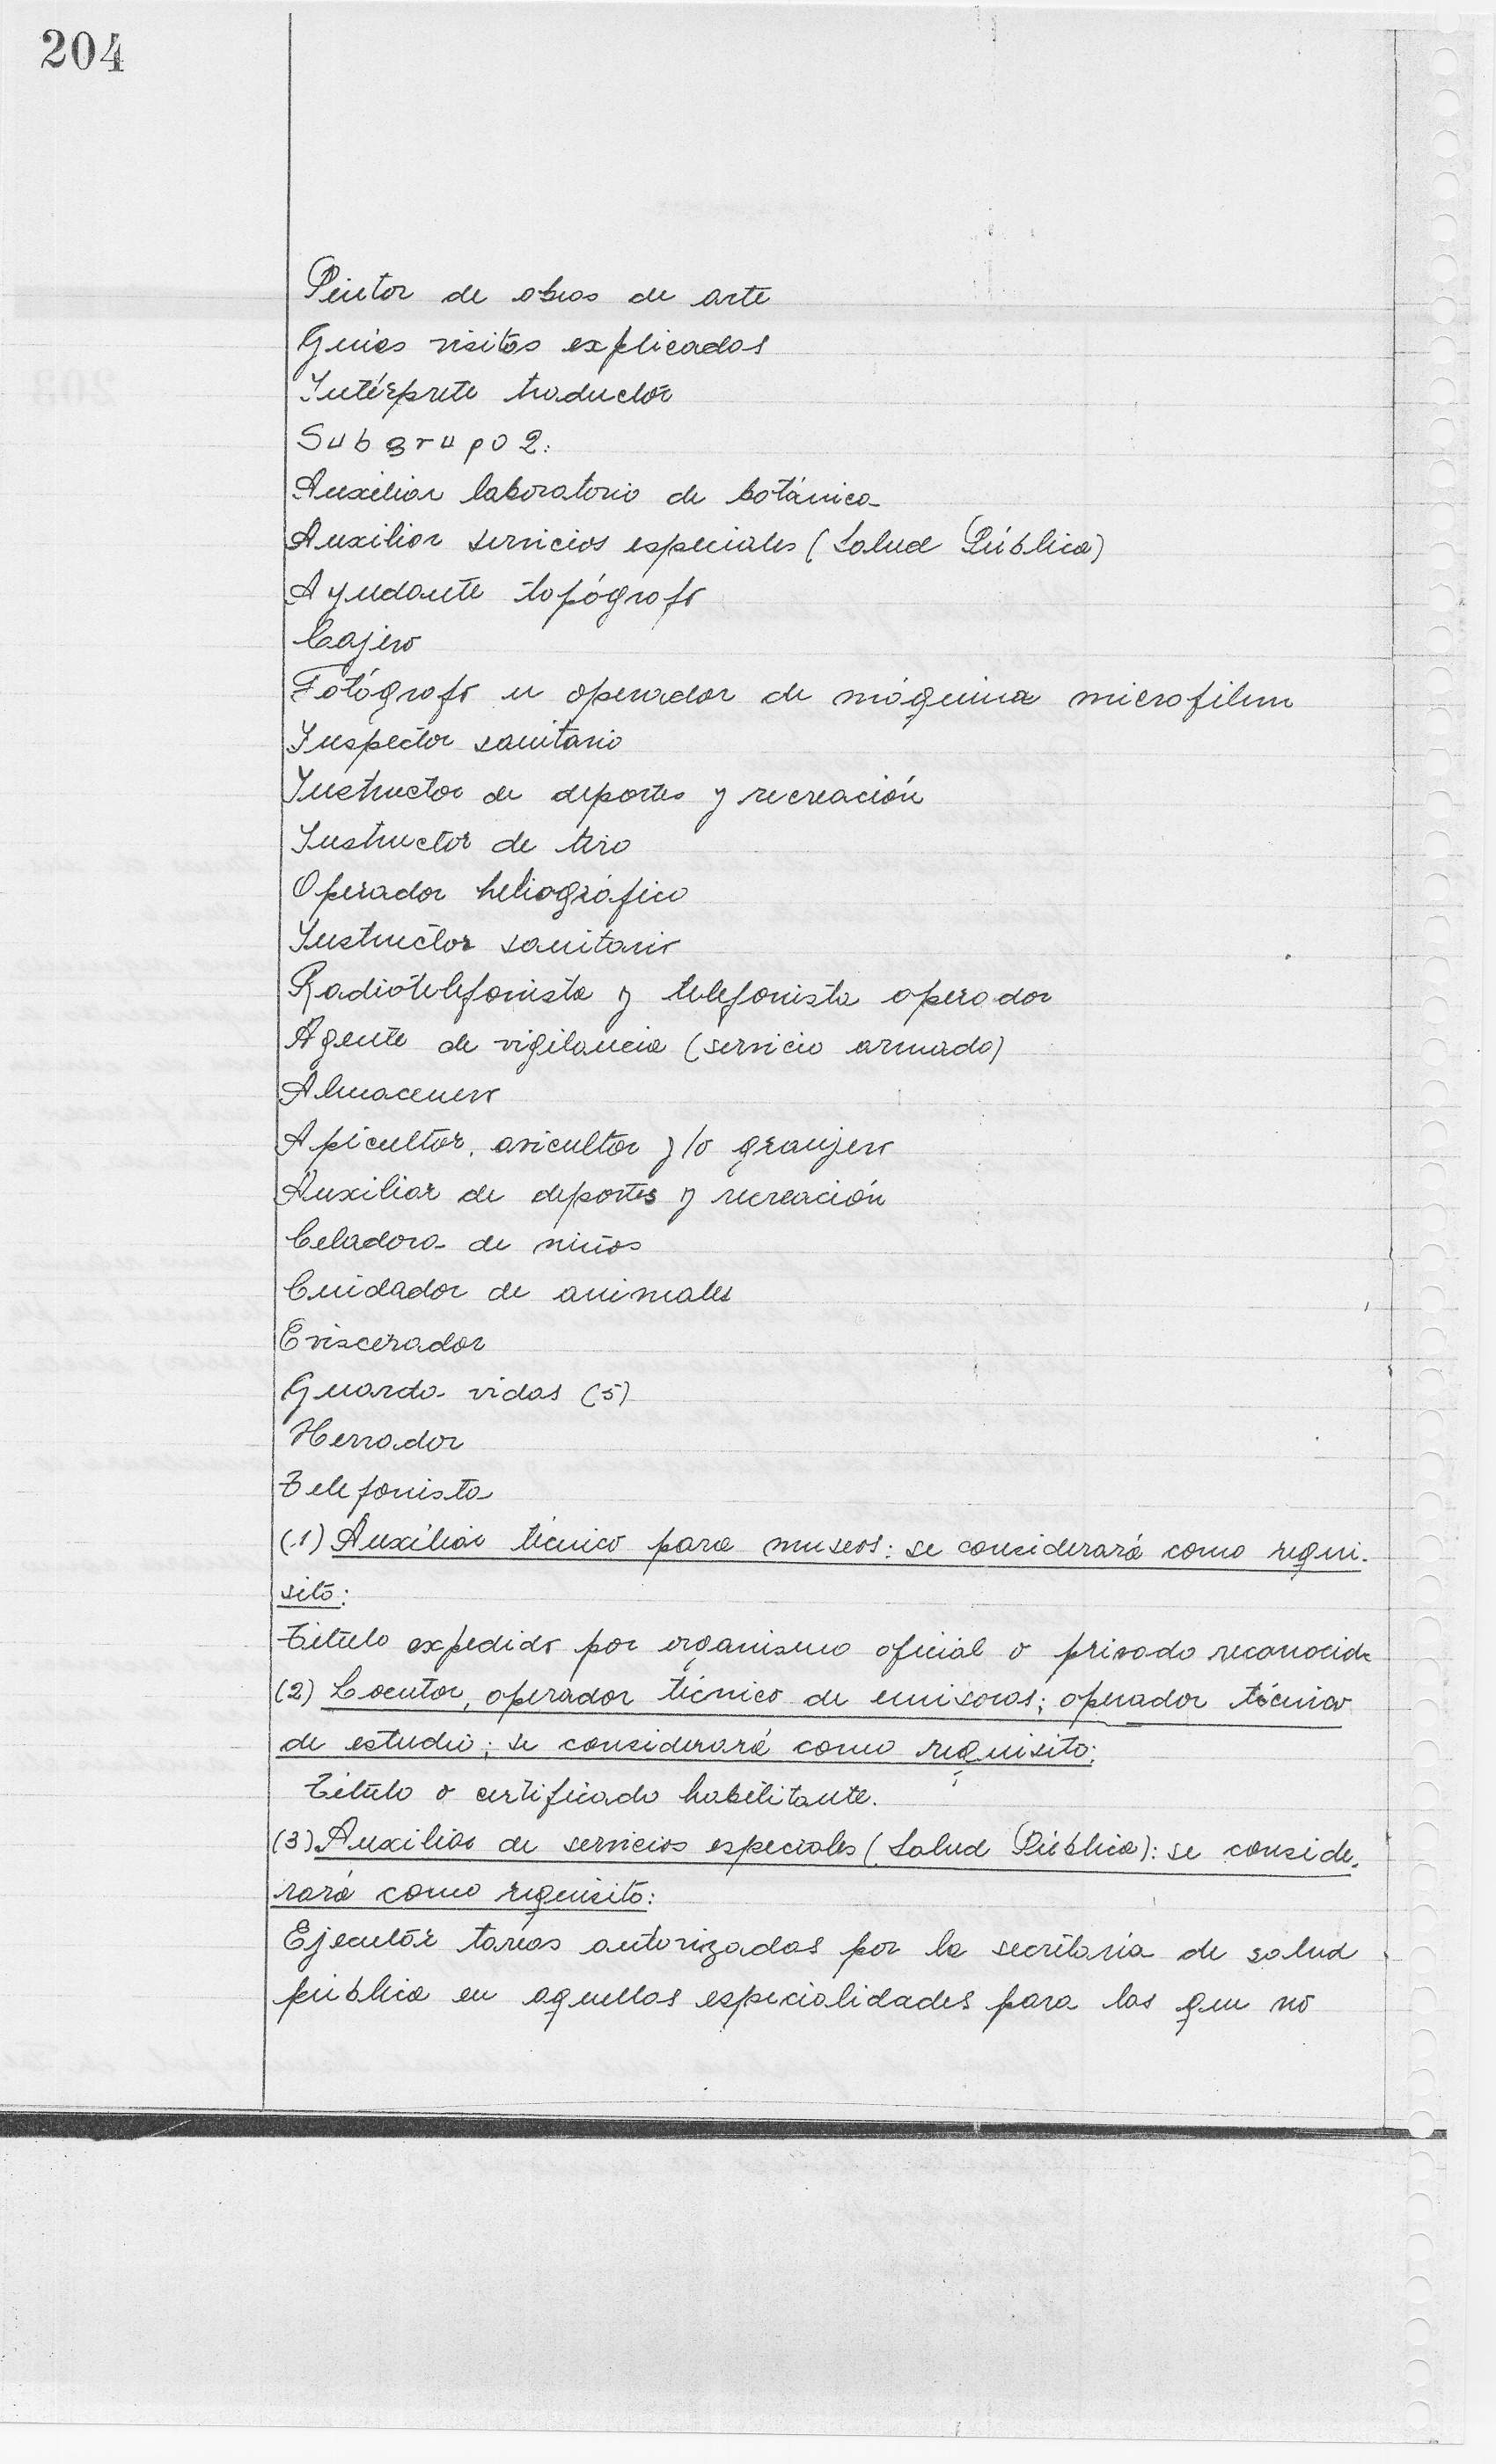 204
Pintor de obras de arte
Guías visitas explicadas
Intérprete traductor
Subgrupo 2:
Auxiliar laboratorio de botánica
Auxiliar servicios especiales (Salud Pública)
Ayudante topógrafo
Cajero
Fotógrafo u operador de máquina microfilm
Inspector sanitario
Instructor de deportes y recreación
Instructor de tiro
Operador heliográfico
Instructor sanitario
Radiotelefonista y telefonista operador
Agente de vigilancia (servicio armado)
Almacenero
Apicultor, avicultor y/o granjero
Auxiliar de deportes y recreación
Celadora de niños
Cuidador de animales
Eviscerador
Guarda vidas (5)
Herrador
Telefonista
(1) Auxiliar técnico para museos: se considerará como requi-
sito:
Título expedido por organismo oficial o privado reconocido
(2) Locutor, operador técnico de emisoras; operador técnico
de estudio; se considerará como requisito:
Título o certificado habilitante.
(3) Auxiliar de servicios especiales (Salud Pública): se conside-
rará como requisito:
Ejecutar tareas autorizadas por la secretaría de salud
pública en aquellas especialidades para las que no